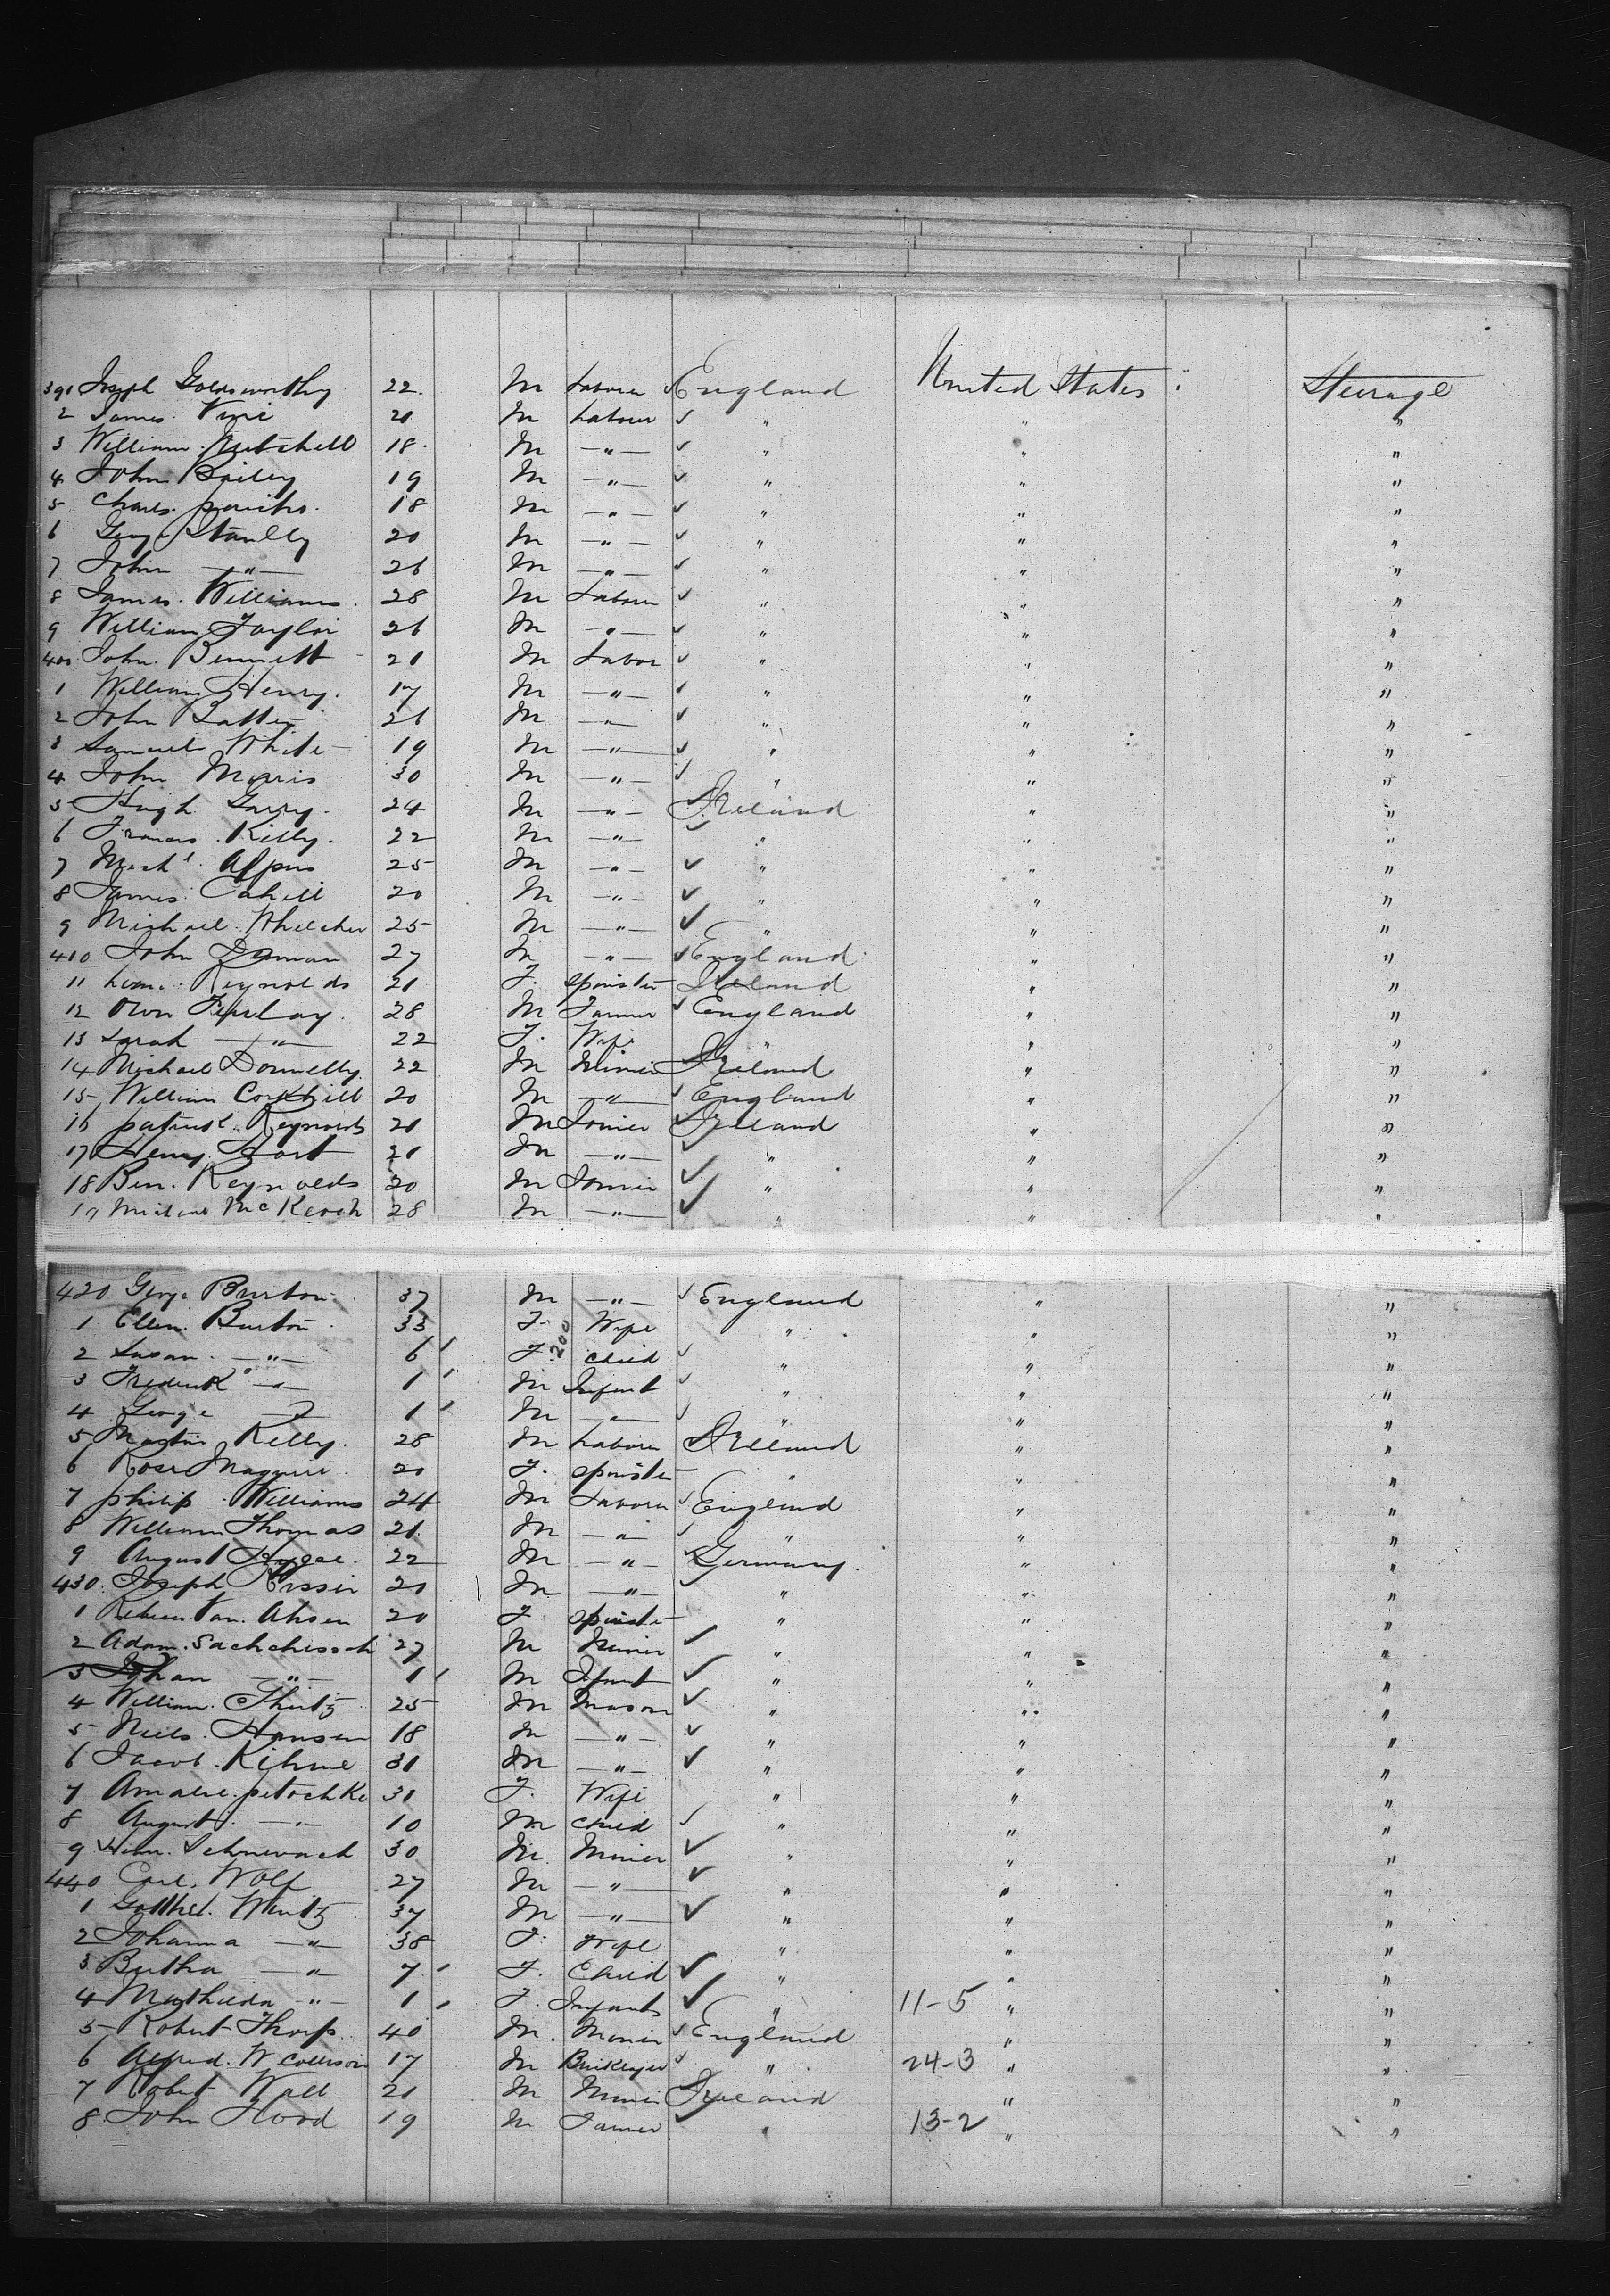 391 Joseph Goldsworthy 22. M Laborer ✓ England United States : Steerage
2 James Vine 21 M Labour ✓ " " "
3 William Mitchell 18. M —"— ✓ " " "
4 John Bailey 19 M —"— ✓ " " "
5 Charls. 18 M —"— ✓ " " "
6 George 20 M —"— ✓ " " "
7 John —"— 26 M —"— ✓ " " "
8 James. Williams. 28 M Laborer ✓ " " "
9 William Taylor 26 M —"— ✓ " " "
400 John. Bennett 21 M Labor ✓ " " "
1 William Henry. 17 M —"— ✓ " " "
2 John 26 M —"— ✓ " " "
3 Samuel White 19 M —"— ✓ " " "
4 John Morris 30 M —"— ✓ " " "
5 Hugh Garry. 24 M —"— ✓ Ireland " "
6 Frances. Kelly. 22 M —"— ✓ " " "
7 Mich'l. 25 M —"— ✓ " " "
8 James Cahill 20 M —"— ✓ " " "
9 Michael 25 M —"— ✓ " " "
410 John 27 M —"— ✓ England " "
11 Reynolds 21 F. Spinster Ireland " "
12 Own 28 M Farmer ✓ England " "
13 Sarah —"— 22 F. Wife " " "
14 Michael Donnelly. 22 M Miner ✓ Ireland " "
15 William 20 M —"— ✓ England " "
16 patrick. Reynolds 21 M ✓ Ireland " "
17 Henry 21 M —"— ✓ " " "
18 Ben. Reynolds 20 M ✓ " " "
19 McKeoch 28 M —"— ✓ " " "
420 George Burton 37 M —"— ✓ England " "
1 Ellen. Burton. 33 F. Wife " " "
2 Susan. —"— 6 ' F. 200 Child ✓ " " "
3 Frederick —"— 1 ' M Infant ✓ " " "
4 George —"— 1 ' M —"— ✓ " " "
5 Martin Kelly. 28 M Laborer ✓ Ireland " "
6 Rose Maguire. 20 F. Spinster " " "
7 philip. Williams 24 M Laborer ✓ England " "
8 William Thomas 21. M —"— ✓ " " "
9 August 22 M —"— ✓ Germany " "
430. Joseph 20 M —"— ✓ " " "
1 Van. Ahsen 20 F Spinster " " "
2 Adam. 27 M Miner ✓ " " "
3 Johan —"— 1 ' M Infant ✓ " " "
4 William. 25 M Mason ✓ " " "
5 Niels. Hansen 18 M —"— ✓ " " "
6 Jacob. 31 M —"— ✓ " " "
7 Amalie. petochke 31 F. Wife " " "
8 August. —"— 10 M Child ✓ " " "
9 30 M. Miner ✓ " " "
440 Carl. Wolf 27 M —"— ✓ " " "
1 37 M —"— ✓ " " "
2 Johanna —"— 38 F. Wife " " "
3 Bertha —"— 7 ' F. Child ✓ " " "
4 Mathilda —"— 1 ' F. Infants ✓ " 11-5 " "
5 Robert Thorp. 40 M. ✓ England " "
6 Alfred. W Collison 17 M Bricklayer ✓ " 24-3 " "
7 Robert Wall 21 M Miner ✓ Ireland " "
8 John Hood 19 M Farmer ✓ " 13-2 " "